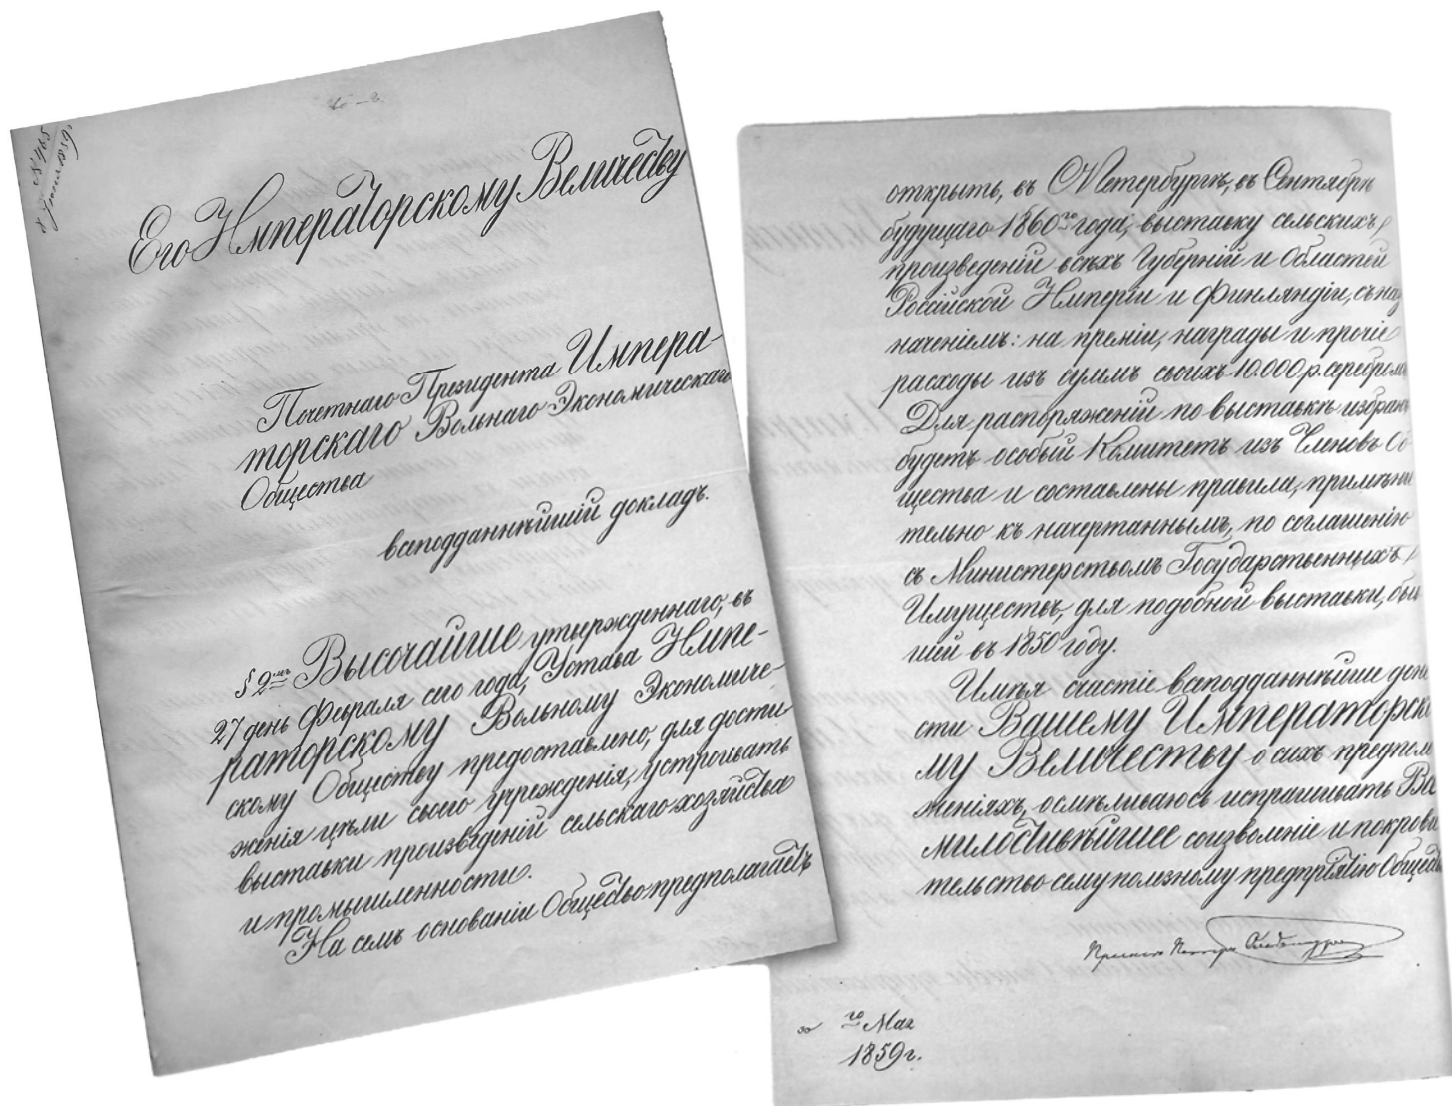 № 465
1859
Его Императорскому Величеству
Почетнаго Президента Импера-
торскаго Вольнаго Экономическаго
Общества
всеподданнѣйшій докладъ.
§ 2мъ Высочайше утвержденнаго, въ
27 день Февраля сего года, Устава Импе-
раторскому Вольному Экономиче-
скому Обществу предоставлено, для дости-
женія цѣли своего учрежденія, устроивать
выставки произведеній сельскаго хозяйства
и промышленности.
На семъ основаніи Общество предполагаетъ
открыть, въ С.Петербургѣ, въ Сентябрѣ
будущаго 1860го года, выставку сельскихъ
произведеній всѣхъ Губерній и Областей
Россійской Имперіи и Финляндіи, съ наз
наченіемъ: на преміи, награды и прочіе
расходы изъ суммъ своихъ 10.000 р. серебромъ
Для распоряженій по выставкѣ избранъ
будетъ особый Комитетъ изъ Членовъ Об
щества и составлены правила, примѣни
тельно къ начертаннымъ, по соглашенію
съ Министерствомъ Государственныхъ
Имуществъ, для подобной выставки, быв
шей въ 1850 году.
Имѣя счастіе всеподданнѣйше доне
сти Вашему Императорско
му Величеству о сихъ предполо
женіяхъ, осмѣливаюсь испрашивать Все
милостивѣйшее соизволеніе и покрови
тельство сему полезному предпріятію Общества
Принцъ Петръ Ольденбургскій
30 го Мая
1859 г.